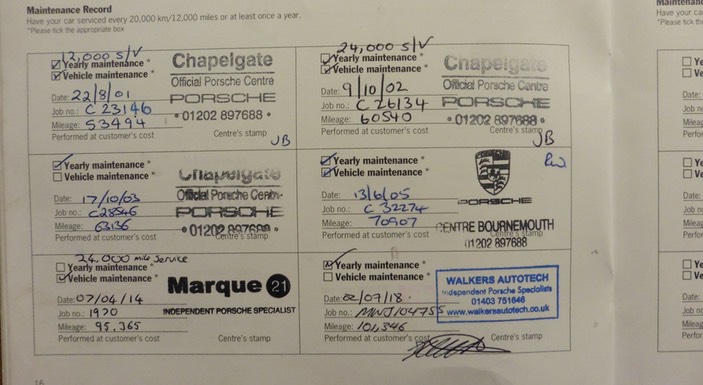 Maintenance Record
Have your car serviced every 20,000 km/12,000 miles or at least once a year.
*Please tick the appropriate box
12,000 S/V
Yearly maintenance *
Vehicle maintenance *
Date: 22/8/01
Job no.: C 23146
Mileage: 53494
Performed at customer's cost
Chapelgate
Official Porsche Centre
PORSCHE
• 01202 897688 •
Centre's stamp
JB
24,000 S/V
Yearly maintenance *
Vehicle maintenance *
Date: 9/10/02
Job no.: C 26134
Mileage: 60540
Performed at customer's cost
Chapelgate
Official Porsche Centre
PORSCHE
• 01202 897688 •
Centre's stamp
JB
Yearly maintenance *
Vehicle maintenance *
Date: 17/10/03
Job no.: C28546
Mileage: 63136
Performed at customer's cost
Chapelgate
Official Porsche Centre
PORSCHE
• 01202 897688 •
Centre's stamp
Yearly maintenance *
Vehicle maintenance *
Date: 13/6/05
Job no.: C 32274
Mileage: 70907
Performed at customer's cost
PORSCHE
CENTRE BOURNEMOUTH
01202 897688
Centre's stamp
24,000 mile Service
Yearly maintenance *
Vehicle maintenance *
Date: 07/04/14
Job no.: 1970
Mileage: 95,365
Performed at customer's cost
Marque 21
INDEPENDENT PORSCHE SPECIALIST
Centre's stamp
Yearly maintenance *
Vehicle maintenance *
Date: 02/07/18.
Job no.: MWJ104755
Mileage: 101,346
Performed at customer's cost
WALKERS AUTOTECH
Independent Porsche Specialists
01403 751646
www.walkersautotech.co.uk
Centre's stamp
16
Maintenance
Have your ca
*Please tick th